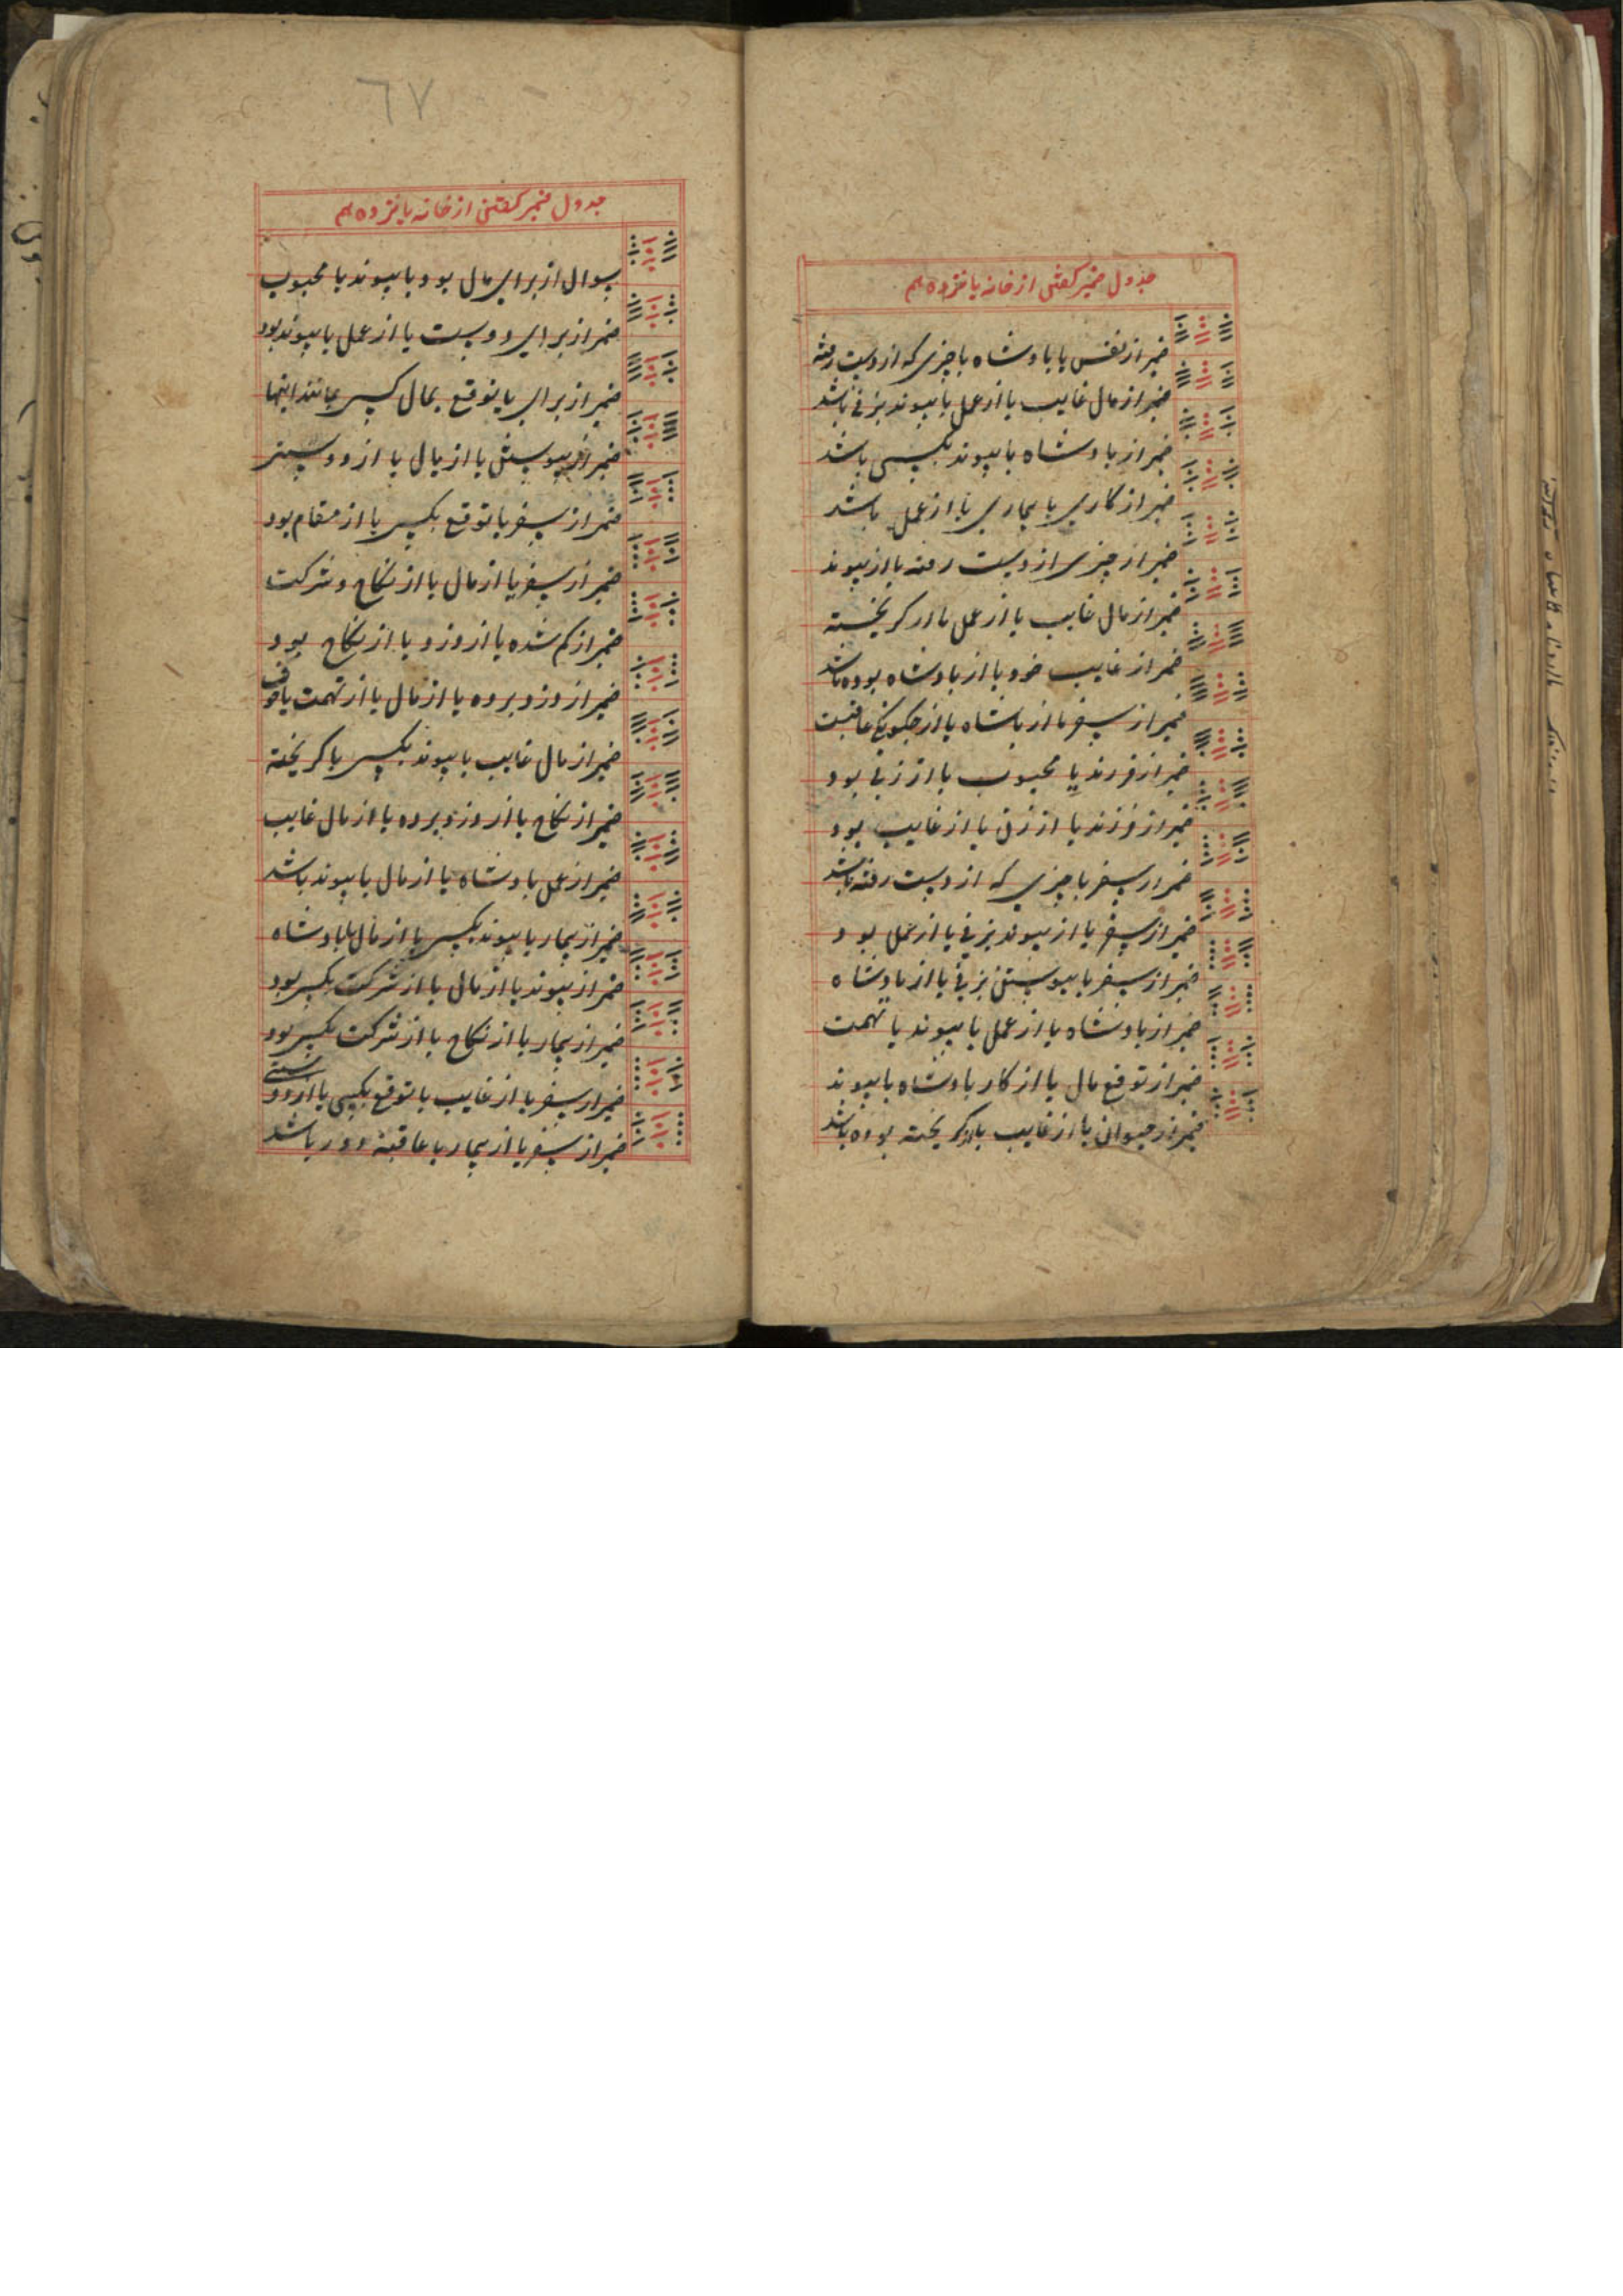 جدول ضمیر گفتن از خانه پانزدهم
ضمیر از نفس یا پادشاه یا چیزی که از دست رفته
ضمیر از مال غایب یا از عمل یا پیوند بزنی باشد
ضمیر از پادشاه یا پیوند بکسی باشد
ضمیر از کاری یا بیماری یا از عمل باشد
ضمیر از چیزی از دست رفته یا از پیوند
ضمیر از مال غایب یا از عمل یا از گریخته
ضمیر از غایب خود یا از پادشاه بوده باشد
ضمیر از سفر یا از پادشاه یا از عاقبت
ضمیر از فرزند یا محبوب یا از زنی بود
ضمیر از فرزند یا از زن یا از غایب بود
ضمیر از سفر یا چیزی که از دست رفته باشد
ضمیر از سفر یا از پیوند بزنی یا از عمل بود
ضمیر از سفر یا پیوستن بزنی یا از پادشاه
ضمیر از پادشاه یا از عمل یا پیوند یا تهمت
ضمیر از توقع مال یا از کار پادشاه یا پیوند
ضمیر از حیوان یا از غایب یا از گریخته بوده باشد
٦٧
جدول ضمیر گفتن از خانه پانزدهم
سوال از برای مال بود یا پیوند یا محبوب
ضمیر از برای دوست یا از عمل یا پیوند بود
ضمیر از برای یا توقع بمال کسی یا مانند اینها
ضمیر از پیوستن یا از مال یا از دوستر
ضمیر از سفر یا توقع بکسی یا از مقام بود
ضمیر از سفر یا از مال یا از نکاح و شرکت
ضمیر از گم شده یا از دزد یا از نکاح بود
ضمیر از دزد برده یا از مال یا از تهمت یا خوف
ضمیر از مال غایب یا پیوند بکسی یا گریخته
ضمیر از نکاح یا از دزد برده یا از مال غایب
ضمیر از عمل پادشاه یا از مال یا پیوند باشد
ضمیر از بیمار یا پیوند بکسی یا از مال یا پادشاه
ضمیر از پیوند یا از مال یا از شرکت بکسی بود
ضمیر از بیمار یا از نکاح یا از شرکت بکسی بود
ضمیر از سفر یا از غایب یا توقع بکسی یا از دوستی
ضمیر از سفر یا از بیمار یا عاقبت دور باشد